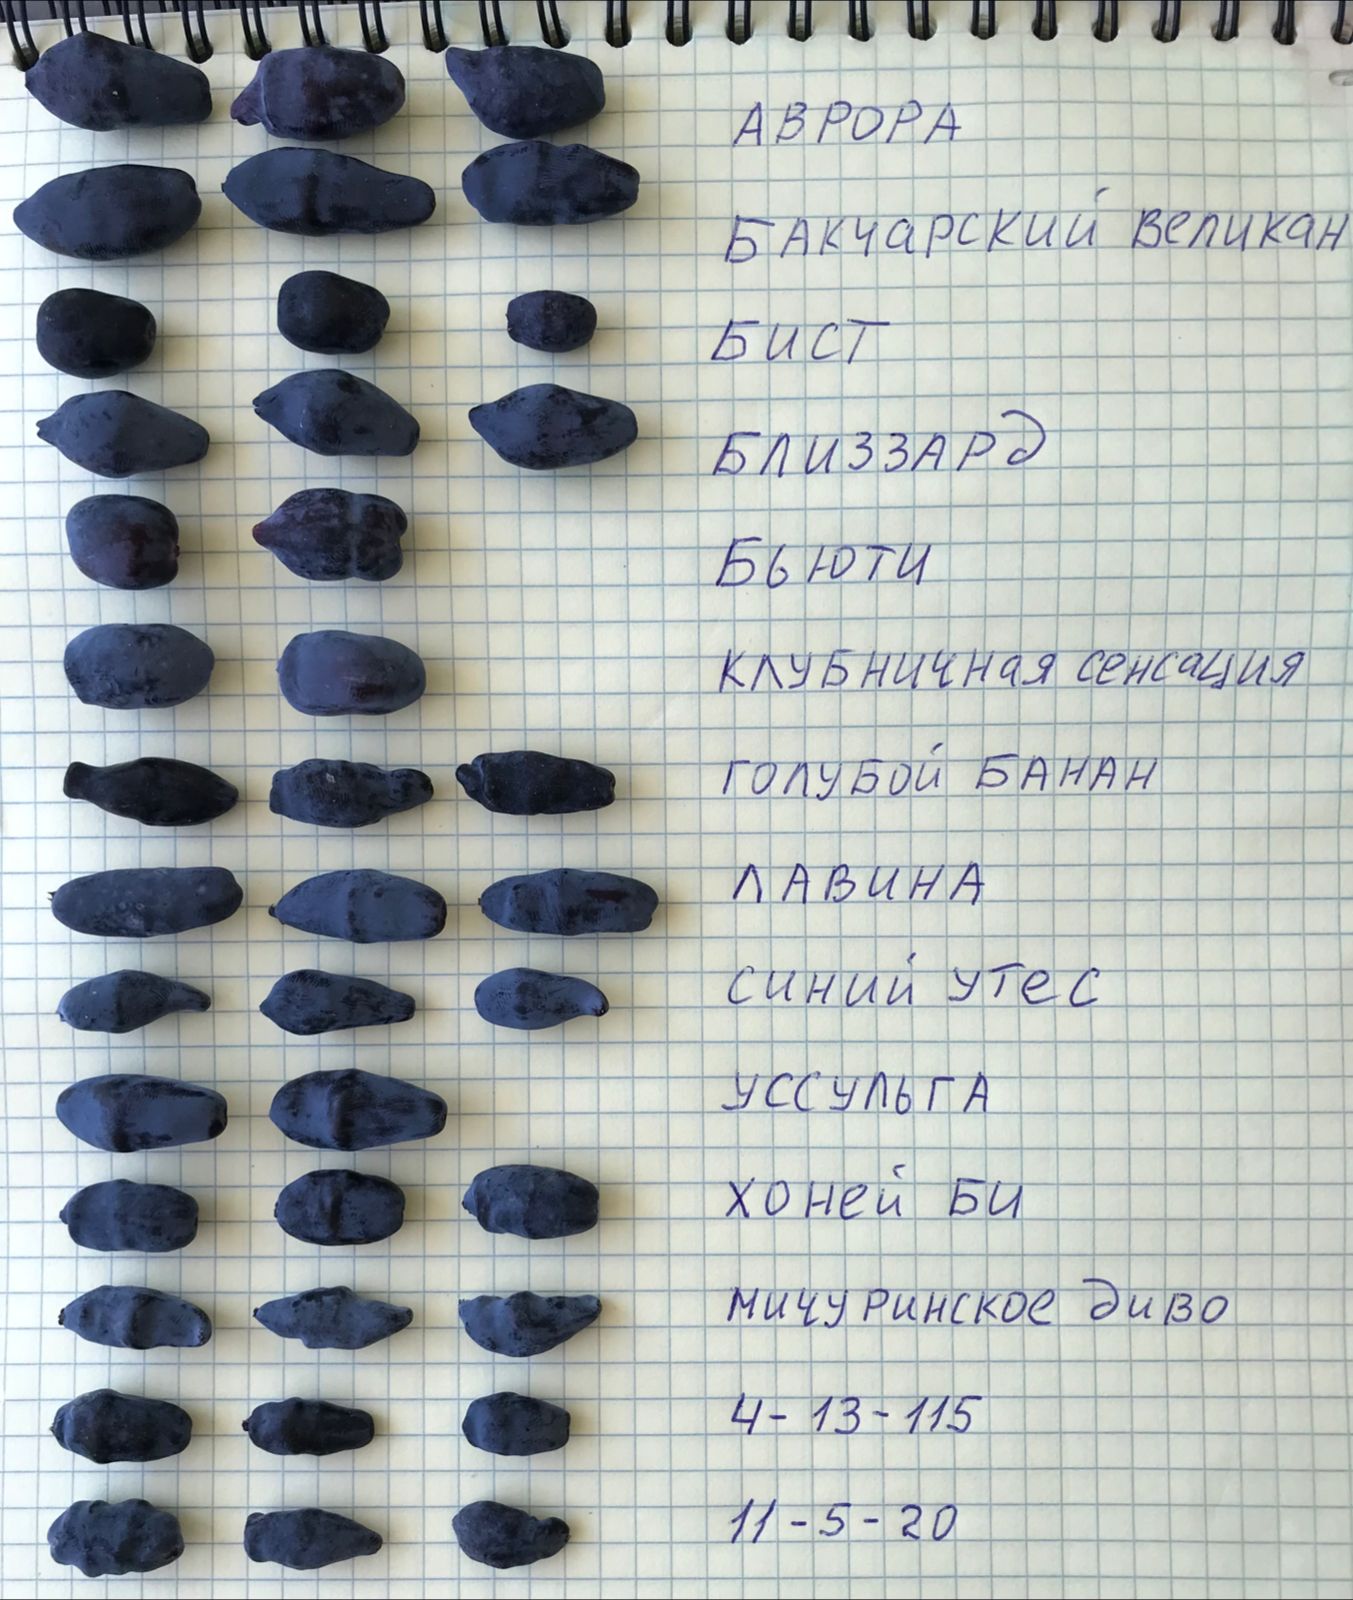 АВРОРА
БАКЧАРСКИЙ ВЕЛИКАН
БИСТ
БЛИЗЗАРД
БЬЮТИ
КЛУБНИЧНАЯ СЕНСАЦИЯ
ГОЛУБОЙ БАНАН
ЛАВИНА
СИНИЙ УТЕС
УССУЛЬГА
ХОНЕЙ БИ
МИЧУРИНСКОЕ ДИВО
4-13-115
11-5-20